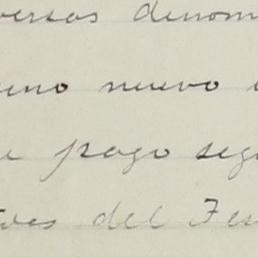 versos denom
uno nuevo
e pago seg
tes del Fer